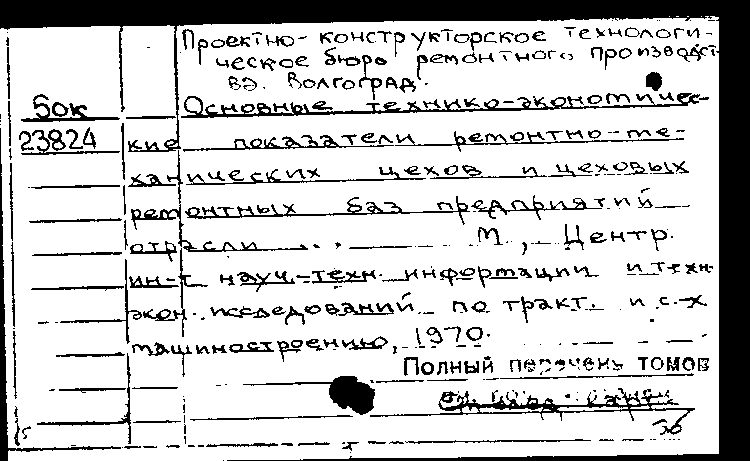 Проектно-конструкторское технологи-
ческое бюро ремонтного производст-
ва. Волгоград.
Бок
23824
Основные технико-экономичес-
кие показатели ремонтно-ме-
ханических цехов и цеховых
ремонтных баз предприятий
отрасли ... М, Центр.
ин-т науч.-техн. информации и техн.
экон. исследований по тракт. и с.-х
машиностроению, 1970.
Полный перечень томов
36